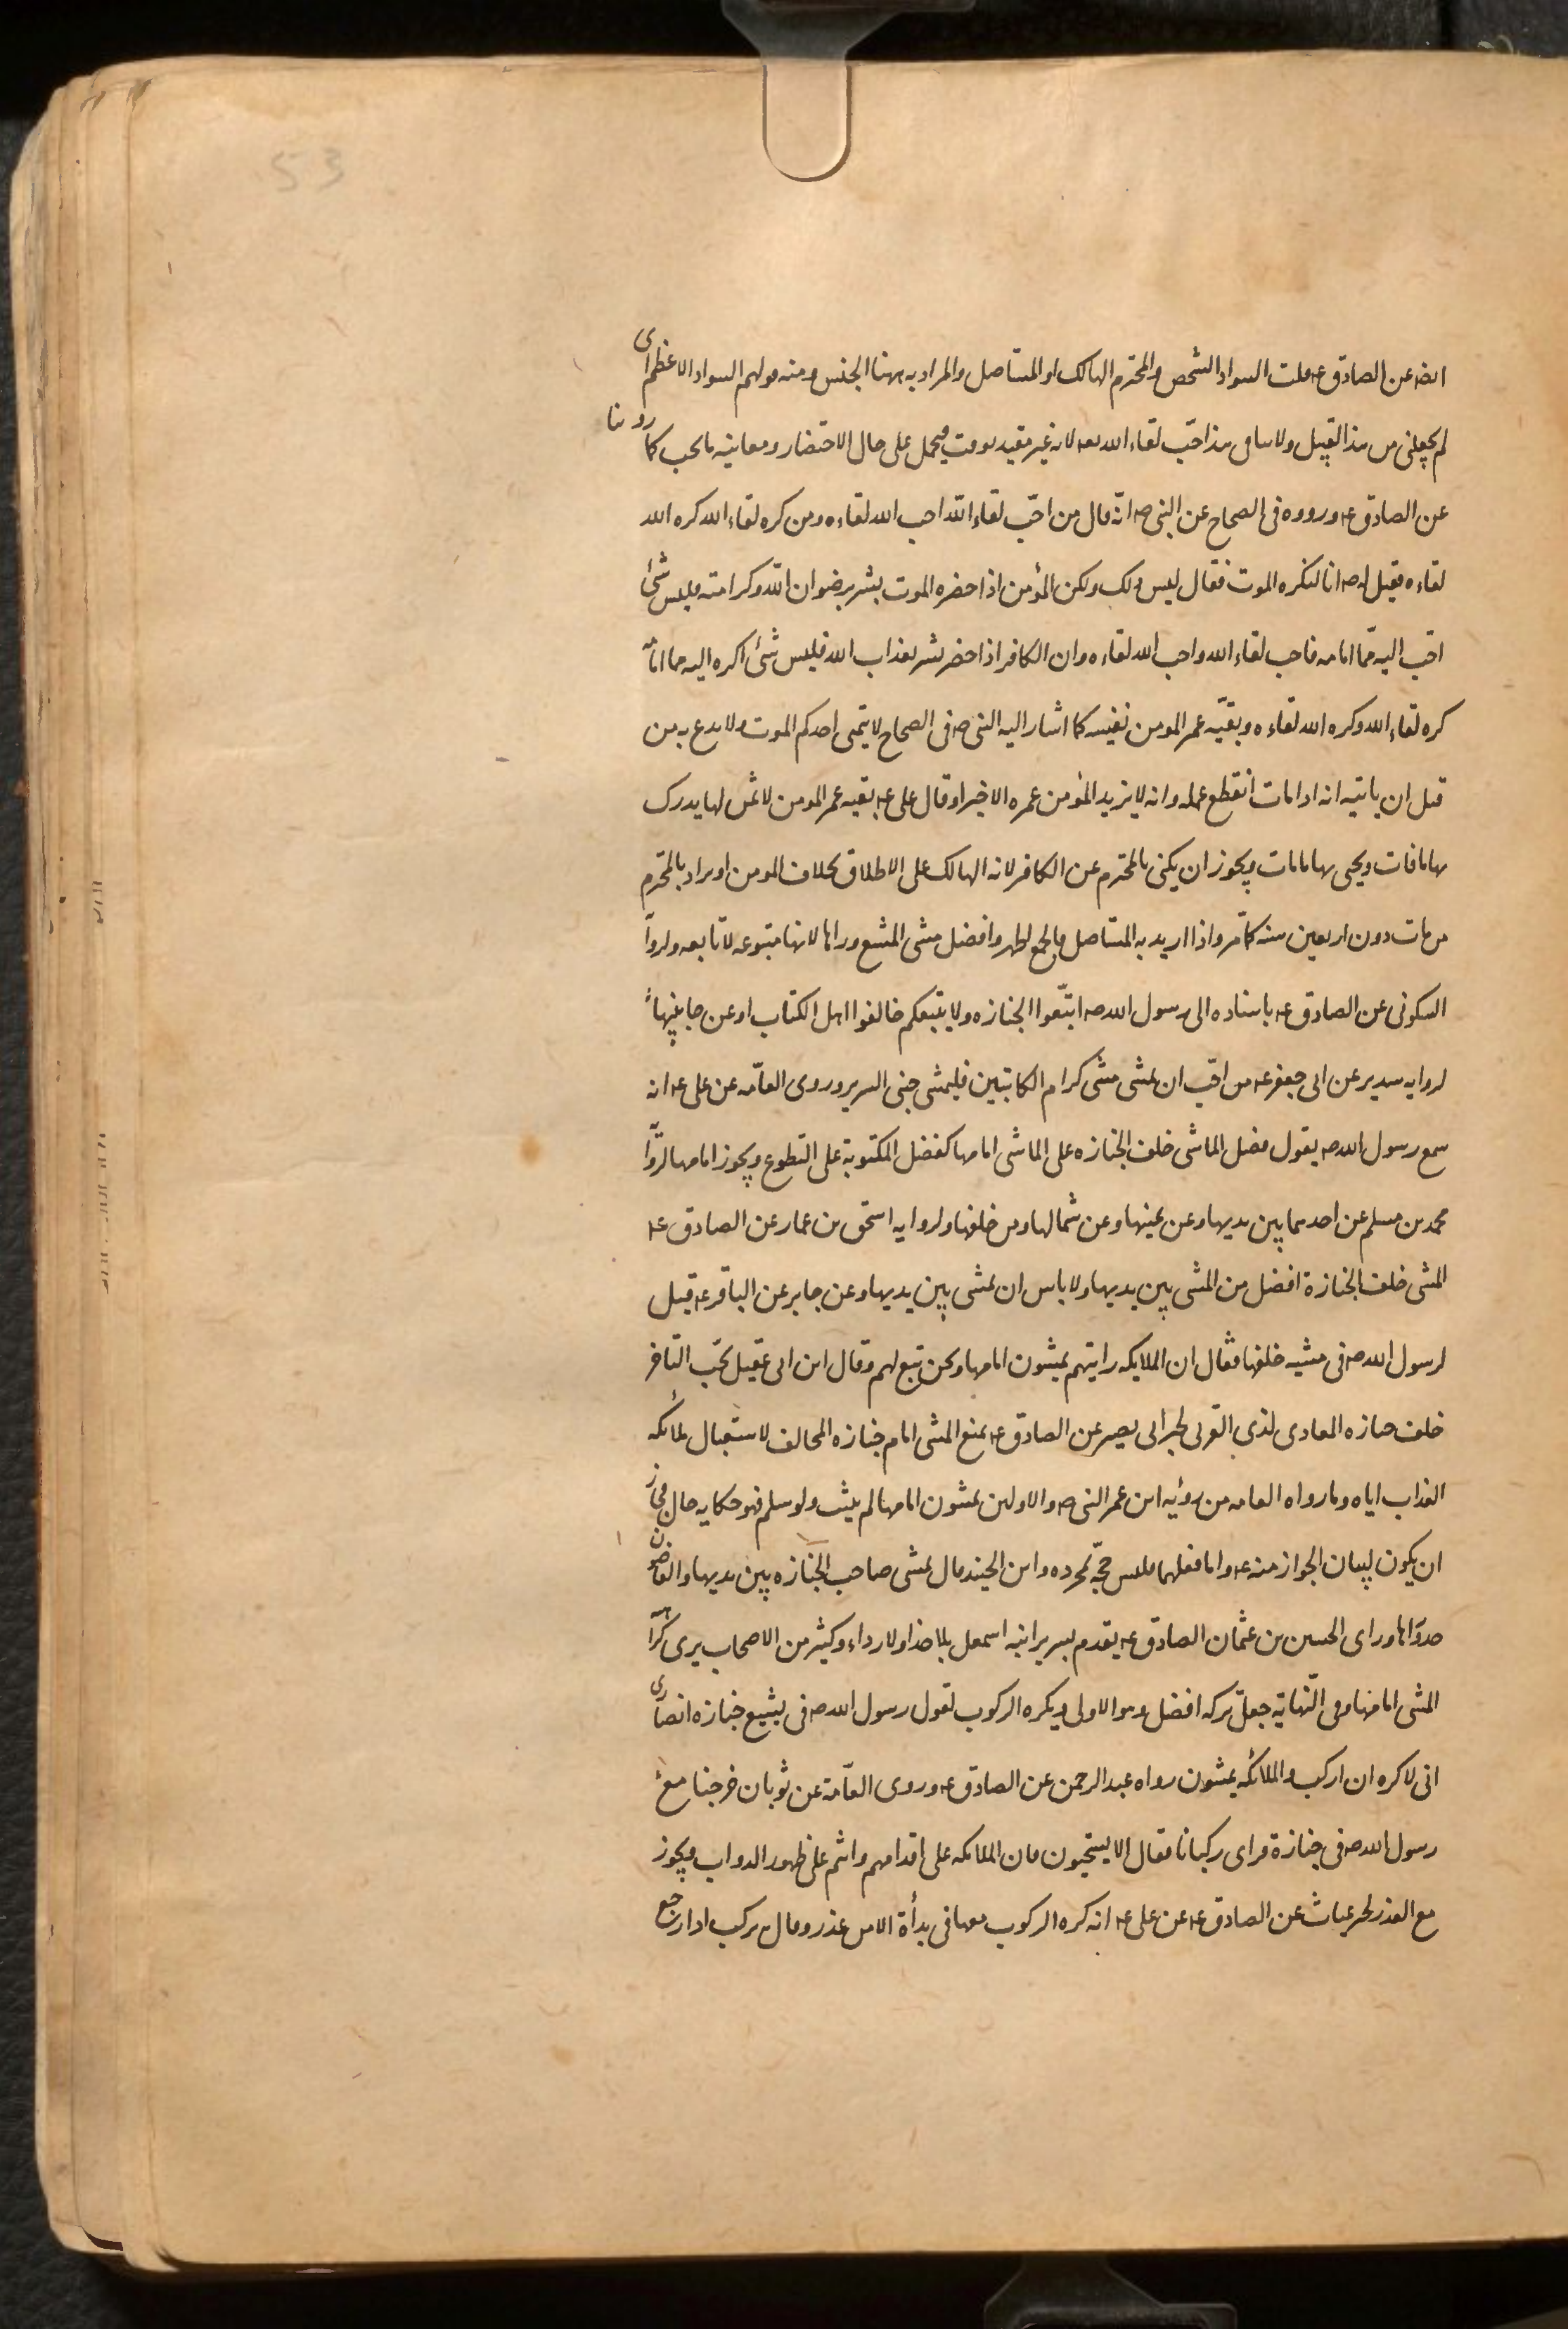 53
ايضه عن الصادق عه قلت السواد الشخص والمخترم الهالك او المستاصل والمراد به ههنا الجنس ومنه قولهم السواد الاعظم اى
لم يجعلنى من هذا القبيل ولا ينافى هذا حبّ لقاء الله تعه لانه غير مقيد بوقت فيحمل على حال الاحتضار ومعاينه ما يحب كما روينا
عن الصادق عه ورووه فى الصحاح عن النبى صه انّه قال من احبّ لقاء اللّه احب الله لقاءه ومن كره لقاء الله كره الله
لقاءه فقيل له صه انا لنكره الموت فقال ليس ذلك ولكن المؤمن اذا حضره الموت بشر برضوان اللّه وكرامته فليس شئ
احبّ اليه ممّا امامه فاحب لقاء الله واحب الله لقاءه وان الكافر اذا حضر بشر بعذاب الله فليس شئ اكره اليه مما امامه
كره لقاء الله وكره الله لقاءه وبقيّه عمر المومن نفيسه كما اشار اليه النبى صه فى الصحاح لا يتمنى احدكم الموت ولا يدع به من
قبل ان ياتيه انه اذا مات انقطع عمله وانه لا يزيد المؤمن عمره الا خيرا وقال على عه بقيه عمر المومن لا ثمن لها يدرك
بها ما فات ويحيى بها ما مات ويجوز ان يكنى بالمخترم عن الكافر لانه الهالك على الاطلاق بخلاف المومن او يراد بالمخترم
من مات دون اربعين سنه كما مّر واذا اريد به المستاصل فالجمع اظهر وافضل مشى المشيع وراءها لانها متبوعه لا تابعه ولروا
السكونى عن الصادق عه باسناده الى رسول الله صه اتبّعوا الجنازه ولا تتبعكم خالفوا اهل الكتاب او عن جانبيها
لروايه سدير عن ابى جعفر عه من احبّ ان يمشى مشى كرام الكاتبين فليمشى جنبى السرير وروى العامّه عن على عه انه
سمع رسول الله صه يقول فضل الماشى خلف الجنازه على الماشى امامها كفضل المكتوبة على التطوع ويجوز امامها لروا
محمد بن مسلم عن احدهما بين يديها وعن يمينها وعن شمالها ومن خلفها ولروايه اسحق بن عمار عن الصادق عه
المشى خلف الجنازة افضل من المشى بين يديها ولا باس ان يمشى بين يديها وعن جابر عن الباقر عه قيل
لرسول الله صه فى مشيه خلفها فقال ان الملايكه رايتهم يمشون امامها ونحن تبع لهم وقال ابن ابى عقيل يجب التاخر
خلف جنازه المعادى لذى القربى لخبر ابى بصير عن الصادق عه بمنع المشى امام جنازه المخالف لاستقبال ملئكه
العذاب اياه وما رواه العامه من رؤيه ابن عمر النبى صه والاولين يمشون امامها لم يثبت ولو سلم فهو حكايه حال فجاز
ان يكون لبيان الجواز منه عه واما فعلهما فليس حجّه بمجرده وابن الجنيد قال يمشى صاحب الجنازه بين يديها والقاضون
حقه وراءها وراى الحسين بن عثمان الصادق عه يقدم سرير ابنه اسمعل بلا حذا ولا رداء وكثير من الاصحاب يرى كراهه
المشى امامها وفى النّهاية جعل تركه افضل وهو الاولى ويكره الركوب لقول رسول الله صه فى تشييع جنازه انصارى
انى لاكره ان اركب والملائكه يمشون رواه عبد الرحمن عن الصادق عه وروى العامّة عن ثوبان خرجنا مع
رسول الله صه فى جنازة فراى ركبانا فقال الا يستحيون فان الملائكه على اقدامهم وانتم على ظهور الدواب ويجوز
مع العذر لخبر غياث عن الصادق عه عن على عه انه كره الركوب معها فى بدأة الا من عذر وقال يركب اذا رجع